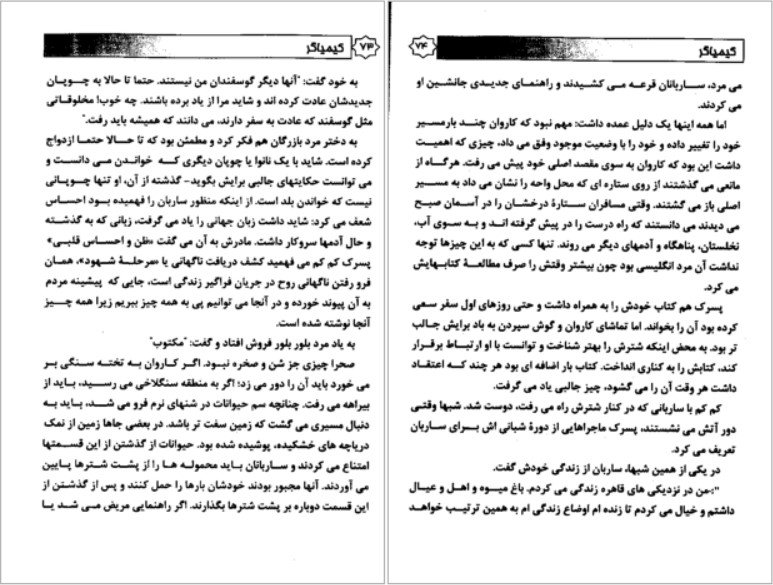 کیمیاگر ۷۳
به خود گفت: "آنها دیگر گوسفندان من نیستند. حتما تا حالا به چوپان
جدیدشان عادت کرده اند و شاید مرا از یاد برده باشند. چه خوب! مخلوقاتی
مثل گوسفند که عادت به سفر دارند، می دانند که همیشه باید رفت."
به دختر مرد بازرگان هم فکر کرد و مطمئن بود که تا حالا حتما ازدواج
کرده است. شاید با یک نانوا یا چوپان دیگری که خواندن می دانست و
می توانست حکایتهای جالبی برایش بگوید- گذشته از آن، او تنها چوپانی
نیست که خواندن بلد است. از اینکه منظور ساربان را فهمیده بود احساس
شعف می کرد: شاید داشت زبان جهانی را یاد می گرفت، زبانی که به گذشته
و حال آدمها سروکار داشت. مادرش به آن می گفت «ظن و احساس قلبی»
پسرک کم کم می فهمید کشف دریافت ناگهانی یا «مرحلهٔ شهود»، همان
فرو رفتن ناگهانی روح در جریان فراگیر زندگی است، جایی که پیشینه مردم
به آن پیوند خورده و در آنجا می توانیم پی به همه چیز ببریم زیرا همه چیز
آنجا نوشته شده است.
به یاد مرد بلور بلور فروش افتاد و گفت: "مکتوب"
صحرا چیزی جز شن و صخره نبود. اگر کاروان به تخته سنگی بر
می خورد باید آن را دور می زد؛ اگر به منطقه سنگلاخی می رسید، باید از
بیراهه می رفت. چنانچه سم حیوانات در شنهای نرم فرو می شد، باید به
دنبال مسیری می گشت که زمین سفت تر باشد. در بعضی جاها زمین از نمک
دریاچه های خشکیده، پوشیده شده بود. حیوانات از گذشتن از این قسمتها
امتناع می کردند و ساربانان باید محموله ها را از پشت شترها پایین
می آوردند. آنها مجبور بودند خودشان بارها را حمل کنند و پس از گذشتن از
این قسمت دوباره بر پشت شترها بگذارند. اگر راهنمایی مریض می شد یا
کیمیاگر ۷۴
می مرد، ساربانان قرعه می کشیدند و راهنمای جدیدی جانشین او
می کردند.
اما همه اینها یک دلیل عمده داشت: مهم نبود که کاروان چند بارمسیر
خود را تغییر داده و خود را با وضعیت موجود وفق می داد، چیزی که اهمیت
داشت این بود که کاروان به سوی مقصد اصلی خود پیش می رفت. هرگاه از
مانعی می گذشتند از روی ستاره ای که محل واحه را نشان می داد به مسیر
اصلی باز می گشتند. وقتی مسافران ستارهٔ درخشان را در آسمان صبح
می دیدند می دانستند که راه درست را در پیش گرفته اند و به سوی آب،
نخلستان، پناهگاه و آدمهای دیگر می روند. تنها کسی که به این چیزها توجه
نداشت آن مرد انگلیسی بود چون بیشتر وقتش را صرف مطالعهٔ کتابهایش
می کرد.
پسرک هم کتاب خودش را به همراه داشت و حتی روزهای اول سفر سعی
کرده بود آن را بخواند. اما تماشای کاروان و گوش سپردن به باد برایش جالب
تر بود. به محض اینکه شترش را بهتر شناخت و توانست با او ارتباط برقرار
کند، کتابش را به کناری انداخت. کتاب بار اضافه ای بود هر چند که اعتقاد
داشت هر وقت آن را می گشود، چیز جالبی یاد می گرفت.
کم کم با ساربانی که در کنار شترش راه می رفت، دوست شد. شبها وقتی
دور آتش می نشستند، پسرک ماجراهایی از دورهٔ شبانی اش برای ساربان
تعریف می کرد.
در یکی از همین شبها، ساربان از زندگی خودش گفت.
"-من در نزدیکی های قاهره زندگی می کردم. باغ میوه و اهل و عیال
داشتم و خیال می کردم تا زنده ام اوضاع زندگی ام به همین ترتیب خواهد